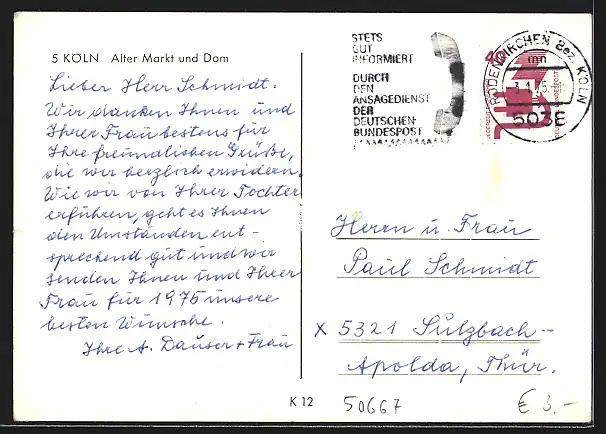 5 KÖLN Alter Markt und Dom
Lieber Herr Schmidt.
Wir danken Ihnen und
Ihrer Frau bestens für
Ihre freundlichen Grüße,
die wir herzlich erwidern.
Wie wir von Ihrer Tochter
erfuhren, geht es Ihnen
den Umständen ent-
sprechend gut und wir
senden Ihnen und Ihrer
Frau für 1975 unsere
besten Wünsche.
Ihre A. Dauser + Frau
STETS
GUT
INFORMIERT
DURCH
DEN
ANSAGEDIENST
DER
DEUTSCHEN
BUNDESPOST
RODENKIRCHEN Bez. KÖLN
mn
5038
Herrn u. Frau
Paul Schmidt
x 5321 Sulzbach-
Apolda, Thür.
K 12
50667
€ 3.-